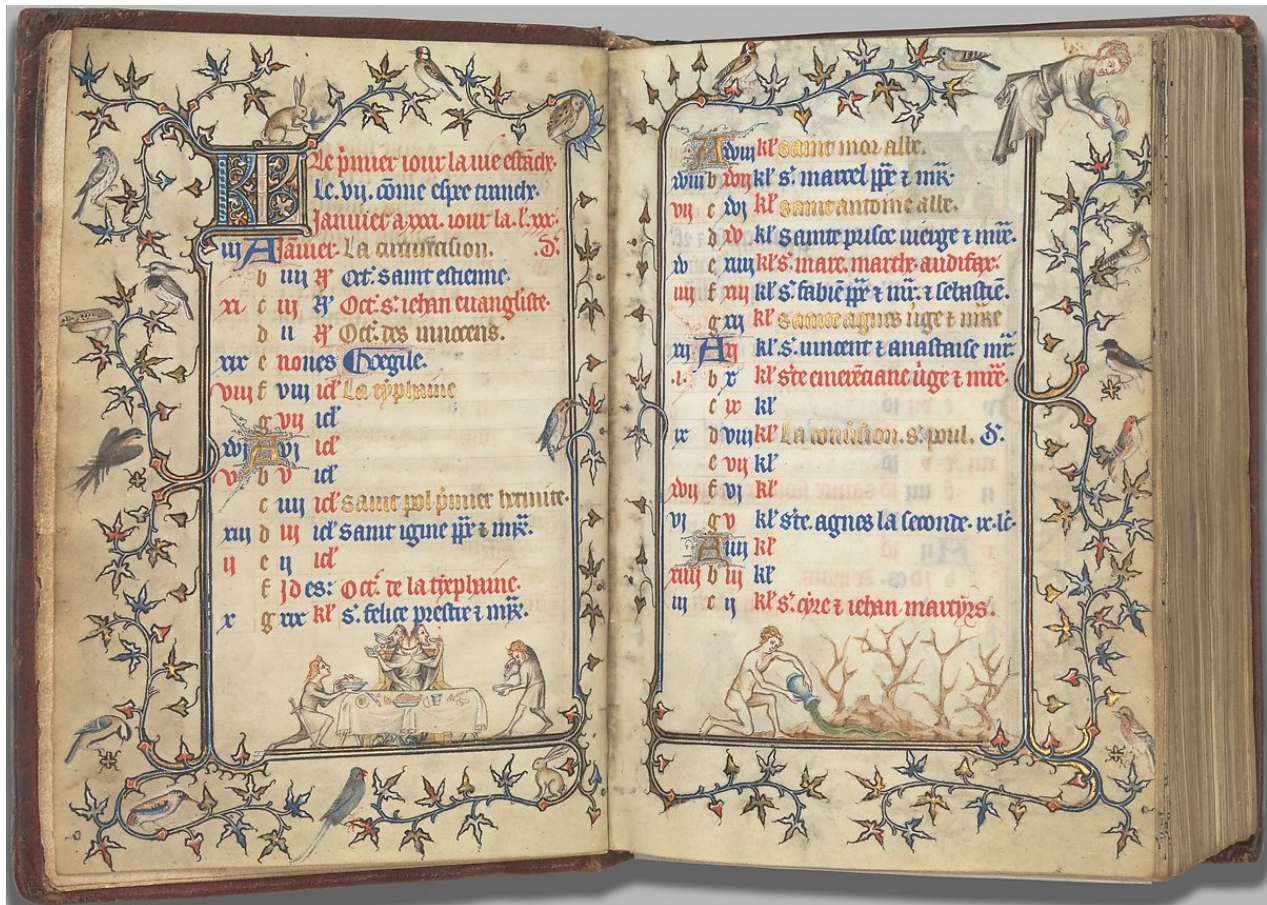 KL Le p̄mier iour la uie est
le. vij. cōme espee
Januier a xxxi. iour la. l. xxx.
iij A Januier. La circuncision. .D.
b iiij Oct. saint estienne.
xi c iij Oct. s. iehan euangliste.
d ij Oct. des innocens.
xix e nones
viij f viij id La typhaine
g vij id
xvj A vj id
v b v id
c iiij id saint pol p̄mier hermite.
xiij d iij id saint igine p̄p̄e ⁊ mr̄.
ij e ij id
f Jdes: Oct. de la typhaine.
x g xix kl s. felice prestre ⁊ mr̄.
A xviij kl saint mor abbe.
xviij b xvij kl s. marcel p̄p̄e ⁊ mr̄.
vij c xvj kl saint antoine abbe.
d xv kl sainte prisce uierge ⁊ mr̄e.
xv e xiiij kl s. mare. marthe. audifax.
iiij f xiij kl s. fabiē p̄p̄e ⁊ mr̄ ⁊ sebastiē.
g xij kl sainte agnes uige ⁊ mr̄e
xij A xj kl s. uincent ⁊ anastaise mr̄.
.i. b x kl ste emerēciane uige ⁊ mr̄e.
c ix kl
ix d viij kl La conuersion. s. poul. D.
e vij kl
xvij f vj kl
vj g v kl ste. agnes la seconde. ix. lc.
A iiij kl
xiiij b iij kl
iij c ij kl s. cyre ⁊ iehan martyrs.